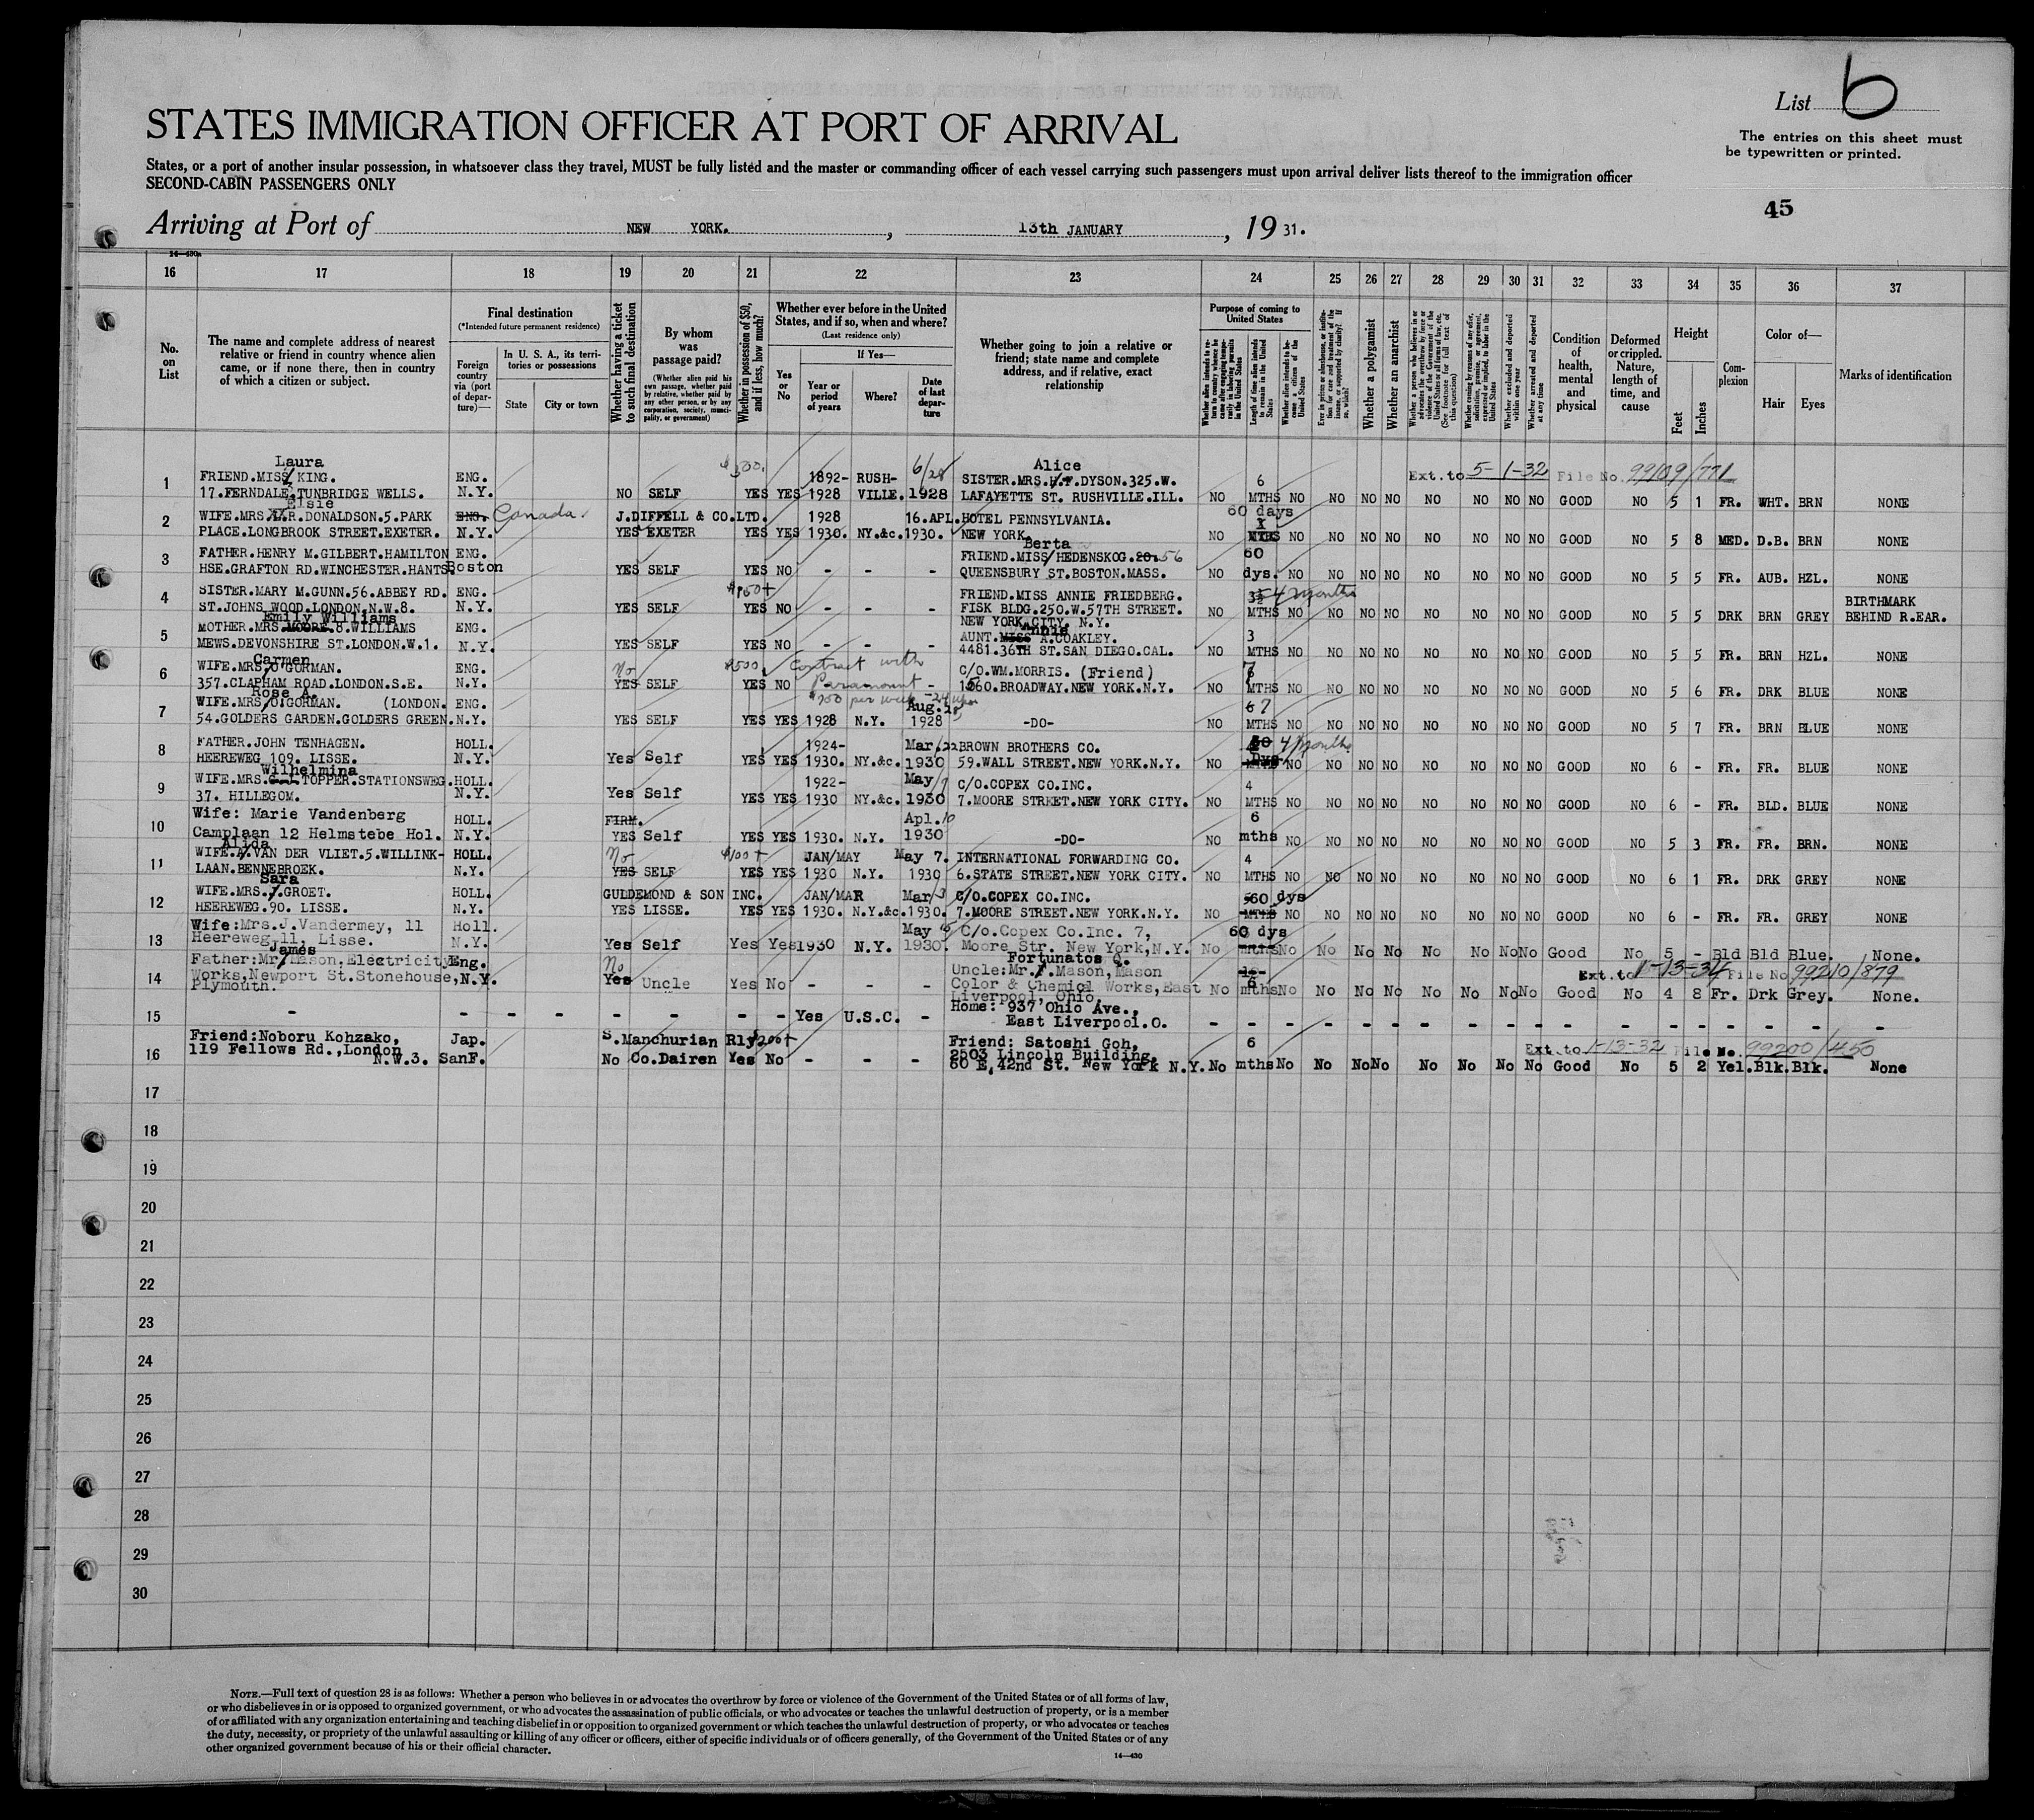 List 6
STATES IMMIGRATION OFFICER AT PORT OF ARRIVAL
The entries on this sheet must
be typewritten or printed.
States, or a port of another insular possession, in whatsoever class they travel, MUST be fully listed and the master or commanding officer of each vessel carrying such passengers must upon arrival deliver lists thereof to the immigration officer
SECOND-CABIN PASSENGERS ONLY
45
Arriving at Port of NEW YORK. , 13th JANUARY , 19 31.
14—430a
16 17 18 19 20 21 22 23 24 25 26 27 28 29 30 31 32 33 34 35 36 37
No. on List
The name and complete address of nearest relative or friend in country whence alien came, or if none there, then in country of which a citizen or subject.
Final destination
(*Intended future permanent residence)
Foreign country via (port of departure)—
In U. S. A., its territories or possessions
State City or town
Whether having a ticket to such final destination
By whom was passage paid?
(Whether alien paid his own passage, whether paid by relative, whether paid by any other person, or by any corporation, society, municipality, or government)
Whether in possession of $50, and if less, how much?
Whether ever before in the United States, and if so, when and where?
(Last residence only)
Yes or No
If Yes—
Year or period of years
Where?
Date of last departure
Whether going to join a relative or friend; state name and complete address, and if relative, exact relationship
Purpose of coming to United States
Length of time alien intends to remain in the United States
Whether alien intends to become a citizen of the United States
Whether a polygamist
Whether an anarchist
Whether excluded and deported within one year
Whether arrested and deported at any time
Condition of health, mental and physical
Deformed or crippled. Nature, length of time, and cause
Height
Feet Inches
Complexion
Color of—
Hair Eyes
Marks of identification
Laura $300. 6/28 Alice
1 FRIEND.MISS KING. ENG. 1892- RUSH- SISTER.MRS.H.F.DYSON.325.W. 6 Ext. to 5-1-32 File No. 99109/771
17.FERNDALE.TUNBRIDGE WELLS. N.Y. NO SELF YES YES 1928 VILLE. 1928 LAFAYETTE ST. RUSHVILLE.ILL. NO MTHS NO NO NO NO NO NO NO NO GOOD NO 5 1 FR. WHT. BRN NONE
Elsie 60 days
2 WIFE.MRS R.DONALDSON.5.PARK ENG. Canada J.DIFFELL & CO.LTD. 1928 16.APL. HOTEL PENNSYLVANIA.
PLACE.LONGBROOK STREET.EXETER. N.Y. YES EXETER YES YES 1930. NY.&c. 1930. NEW YORK. NO MTHS NO NO NO NO NO NO NO NO GOOD NO 5 8 MED. D.B. BRN NONE
Berta
3 FATHER.HENRY M.GILBERT.HAMILTON ENG. FRIEND.MISS HEDENSKOG.20. 56 60
HSE.GRAFTON RD.WINCHESTER.HANTS. Boston YES SELF YES NO - - - QUEENSBURY ST.BOSTON.MASS. NO dys. NO NO NO NO NO NO NO NO GOOD NO 5 5 FR. AUB. HZL. NONE
4 SISTER.MARY M.GUNN.56.ABBEY RD. ENG. FRIEND.MISS ANNIE FRIEDBERG. 4 months
ST.JOHNS WOOD.LONDON.N.W.8. N.Y. YES SELF YES NO - - - FISK BLDG.250.W.57TH STREET. NO MTHS NO NO NO NO NO NO NO NO GOOD NO 5 5 DRK BRN GREY BIRTHMARK BEHIND R.EAR.
NEW YORK CITY. N.Y.
Emily Williams Annie
5 MOTHER.MRS.MOORE.8.WILLIAMS ENG. AUNT.MISS A.COAKLEY. 3
MEWS.DEVONSHIRE ST.LONDON.W.1. N.Y. YES SELF YES NO - - - 4481.36TH ST.SAN DIEGO.CAL. NO MTHS NO NO NO NO NO NO NO NO GOOD NO 5 5 FR. BRN HZL. NONE
Carmen
6 WIFE.MRS O'GORMAN. ENG. No $500. Contract with C/O.WM.MORRIS. (Friend) 7
357.CLAPHAM ROAD.LONDON.S.E. N.Y. YES SELF YES NO Paramount - 1560.BROADWAY.NEW YORK.N.Y. NO MTHS NO NO NO NO NO NO NO NO GOOD NO 5 6 FR. DRK BLUE NONE
Rose A. per week
7 WIFE.MRS O'GORMAN. (LONDON. ENG. Aug. 6 7
54.GOLDERS GARDEN.GOLDERS GREEN. N.Y. YES SELF YES YES 1928 N.Y. 1928 -DO- NO MTHS NO NO NO NO NO NO NO NO GOOD NO 5 7 FR. BRN BLUE NONE
8 FATHER.JOHN TENHAGEN. HOLL. 1924- Mar./22 BROWN BROTHERS CO. 4 months
HEEREWEG 109. LISSE. N.Y. Yes Self YES YES 1930. NY.&c. 1930 59.WALL STREET.NEW YORK.N.Y. NO MTHS NO NO NO NO NO NO NO NO GOOD NO 6 - FR. FR. BLUE NONE
Wilhelmina
9 WIFE.MRS. TOPPER.STATIONSWEG. HOLL. 1922- May/9 C/O.COPEX CO.INC. 4
37. HILLEGOM. N.Y. Yes Self YES YES 1930 NY.&c. 1930 7.MOORE STREET.NEW YORK CITY. NO MTHS NO NO NO NO NO NO NO NO GOOD NO 6 - FR. BLD. BLUE NONE
10 Wife: Marie Vandenberg HOLL. FIRM. Apl. 10 6
Camplaan 12 Helmstebe Hol. N.Y. YES Self YES YES 1930. N.Y. 1930 -DO- NO mths NO NO NO NO NO NO NO NO GOOD NO 5 3 FR. FR. BRN. NONE
Alida
11 WIFE.A.VAN DER VLIET.5.WILLINK- HOLL. No $100+ JAN/MAY May 7. INTERNATIONAL FORWARDING CO. 4
LAAN.BENNEBROEK. N.Y. YES SELF YES YES 1930 N.Y. 1930 6.STATE STREET.NEW YORK CITY. NO MTHS NO NO NO NO NO NO NO NO GOOD NO 6 1 FR. DRK GREY NONE
Sara
12 WIFE.MRS.J.GROET. HOLL. GULDEMOND & SON INC. JAN/MAR Mar/3 C/O.COPEX CO.INC. 60 dys
HEEREWEG.90. LISSE. N.Y. YES LISSE. YES YES 1930. N.Y.&c. 1930. 7.MOORE STREET.NEW YORK.N.Y. NO MTHS NO NO NO NO NO NO NO NO GOOD NO 6 - FR. FR. GREY NONE
13 Wife:Mrs.J.Vandermey, 11 Holl. May 16 C/o.Copex Co.Inc. 7, 60 dys
Heereweg 11, Lisse. N.Y. Yes Self Yes Yes 1930 N.Y. 1930. Moore Str. New York,N.Y. No mths No No No No No No No No Good No 5 - Bld Bld Blue. None.
James Fortunatos Q.
14 Father:Mr Mason,Electricity Eng. No Uncle:Mr.F.Mason,Mason Ext. to 1-13-34 File No 99210/879
Works,Newport St.Stonehouse, N.Y. Yes Uncle Yes No - - - Color & Chemical Works,East No 6 mths No No No No No No No No Good No 4 8 Fr. Drk Grey. None.
Plymouth. Liverpool, Ohio.
15 - - - - - - - Yes U.S.C. - Home: 937 Ohio Ave.,
East Liverpool.O. - - - - - - - - - - - - - - - - - -
16 Friend:Noboru Kohzako, Jap. S.Manchurian Rly $200+ Friend: Satoshi Goh, 6 Ext. to 1-13-32 File No. 99200/450
119 Fellows Rd.,London 2503 Lincoln Building,
N.W.3. SanF. No Co.Dairen Yes No - - - 60 E. 42nd St. New York N.Y. No mths No No No No No No No No Good No 5 2 Yel. Blk. Blk. None
17
18
19
20
21
22
23
24
25
26
27
28
29
30
NOTE.—Full text of question 28 is as follows: Whether a person who believes in or advocates the overthrow by force or violence of the Government of the United States or of all forms of law,
or who disbelieves in or is opposed to organized government, or who advocates the assassination of public officials, or who advocates or teaches the unlawful destruction of property, or is a member
of or affiliated with any organization entertaining and teaching disbelief in or opposition to organized government or which teaches the unlawful destruction of property, or who advocates or teaches
the duty, necessity, or propriety of the unlawful assaulting or killing of any officer or officers, either of specific individuals or of officers generally, of the Government of the United States or of any
other organized government because of his or their official character.
14—430